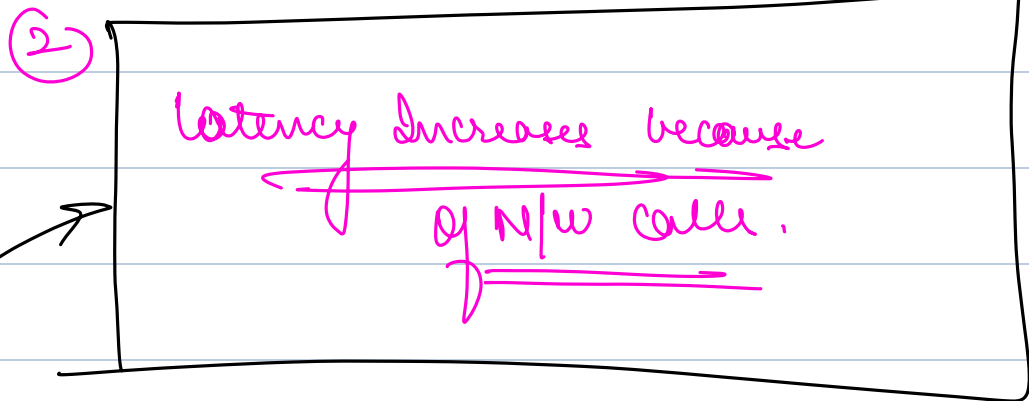 ②
Latency Increases because
of N/W calls.